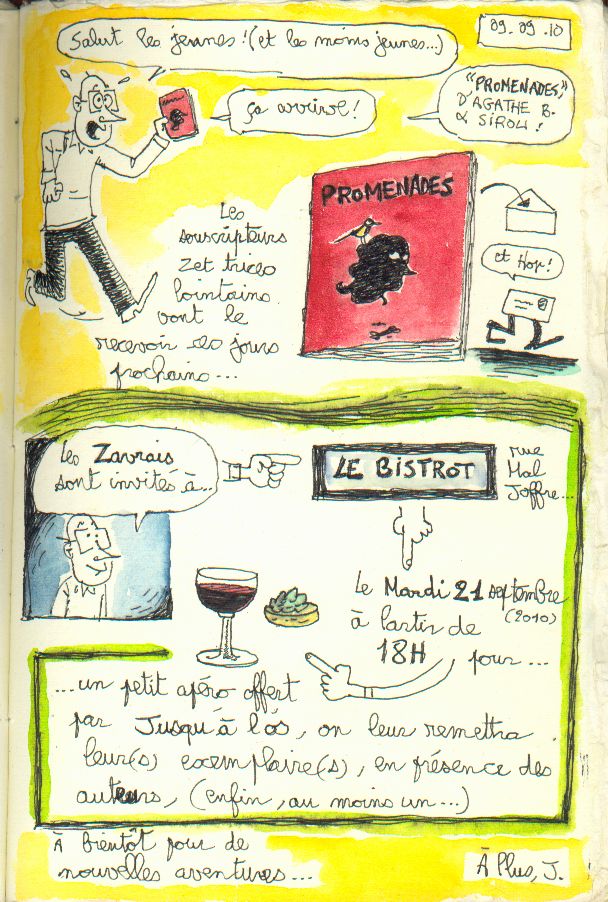 Salut les jeunes ! (et les moins jeunes...)
09.09.10
ça arrive !
"PROMENADES",
D'AGATHE B.
& SIROU !
PROMENADES
Les
souscripteurs
zet trices
lointains
vont le
recevoir ces jours
prochains...
et Hop!
Les Zavrais
sont invités à...
LE BISTROT
rue
Mal
Joffre...
Le Mardi 21 septembre
(2010)
à partir de
18H, pour...
...un petit apéro offert
par Jusqu'à l'os, on leur remettra
leur(s) exemplaire(s), en présence des
auteurs, (enfin, au moins un...)
À bientôt pour de
nouvelles aventures...
À Plus, J.